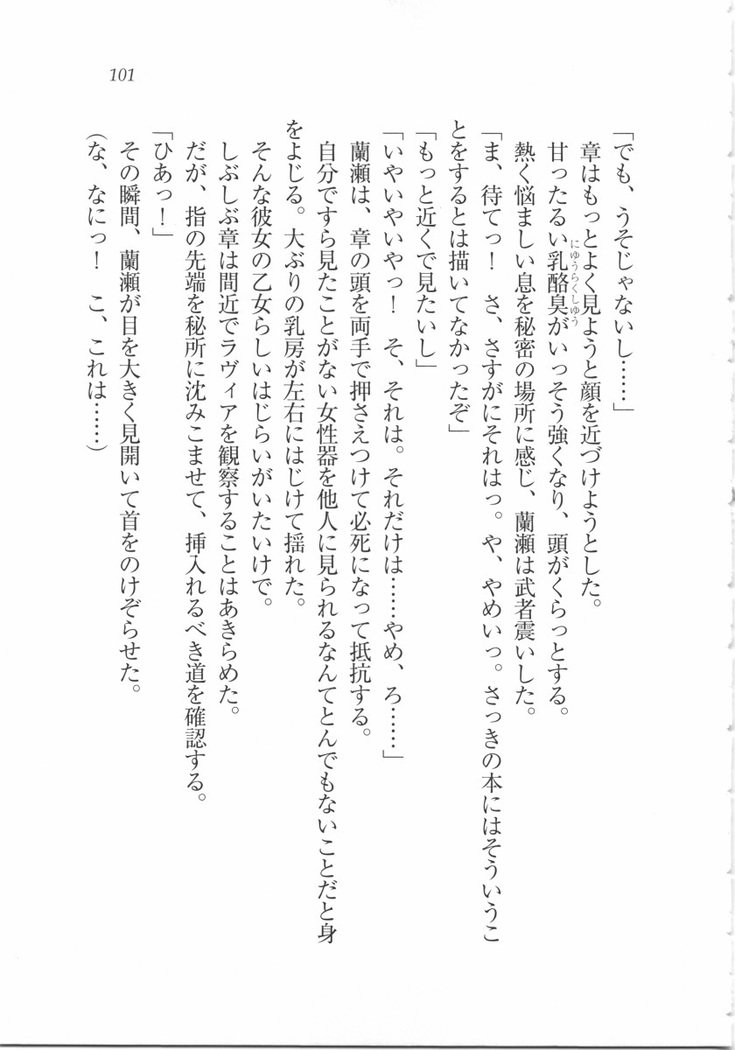 101
「でも、うそじゃないし……」
章はもっとよく見ようと顔を近づけようとした。
甘ったるい乳酪臭がいっそう強くなり、頭がくらっとする。
にゆうらくしゆう
熱く悩ましい息を秘密の場所に感じ、蘭瀬は武者震いした。
「ま、待てっ！　さ、さすがにそれはっ。や、やめいっ。さっきの本にはそういうこ
とをするとは描いてなかったぞ」
「もっと近くで見たいし」
「いやいやいやっ！　そ、それは。それだけは……やめ、ろ……」
蘭瀬は、章の頭を両手で押さえつけて必死になって抵抗する。
自分ですら見たことがない女性器を他人に見られるなんてとんでもないことだと身
をよじる。大ぶりの乳房が左右にはじけて揺れた。
そんな彼女の乙女らしいはじらいがいたいけで。
しぶしぶ章は間近でラヴィアを観察することはあきらめた。
だが、指の先端を秘所に沈みこませて、挿入れるべき道を確認する。
「ひあっ！」
その瞬間、蘭瀬が目を大きく見開いて首をのけぞらせた。
（な、なにっ！　こ、これは……）